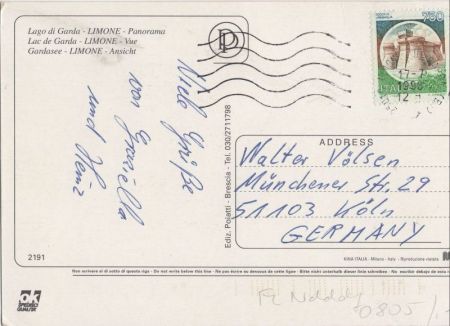 Lago di Garda - LIMONE - Panorama
Lac de Garda - LIMONE - Vue
Gardasee - LIMONE - Ansicht
P
750
ITALIA
17-7
1998
12
Viele Grüße
von
und Heinz
Ediz. Poiatti - Brescia - Tel. 030/2711798
ADDRESS
Walter Völsen
Münchener Str. 29
51103 Köln
GERMANY
2191
KINA ITALIA - Milano - Italy - Riproduzione vietata
Non scrivere al di sotto di questa riga - Do not write below this line - Ne pas écrire au dessous de cette ligne - Bitte nicht unterhalb dieser linie schreiben - No escribir debajo de esta
OK
0805/